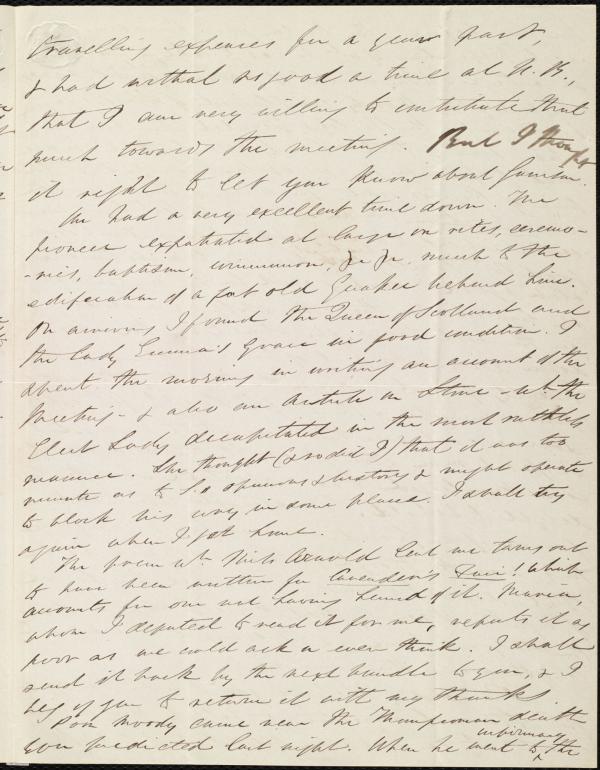 travelling expenses for a year past,
& had withal so good a time at N. B.,
that I am very willing to contribute that
much towards the meeting. But I thought
it right to let you know about
We had a very excellent time down. The
pioneer expatiated at large on rites, ceremo-
-nies, baptism, communion, &c &c, much to the
edification of a fat old Quaker behind him.
On arriving I found the Queen of Scotland and
the Lady Emma's Grace in good condition. I
spent the morning in writing an account of the
Meeting - & also an Article on Stone - wh. the
Elect Lady decapitated in the most ruthless
manner. She thought (& so did I) that it was too
minute as to his opinions & history & might operate
to block his way in some places. I shall try
again when I get home.
The poem wh. Miss Arnold lent me turns out
to have been written for Cavender's Fair! which
accounts for our not having heard of it. Maria,
whom I deputed to read it for me, reports it as
poor as we could ask or even think. I shall
send it back by the next bundle to you, & I
beg of you to return it with my thanks.
Poor Moody came near the Thompsonian death
you predicted last night. When he went to the
infirmary